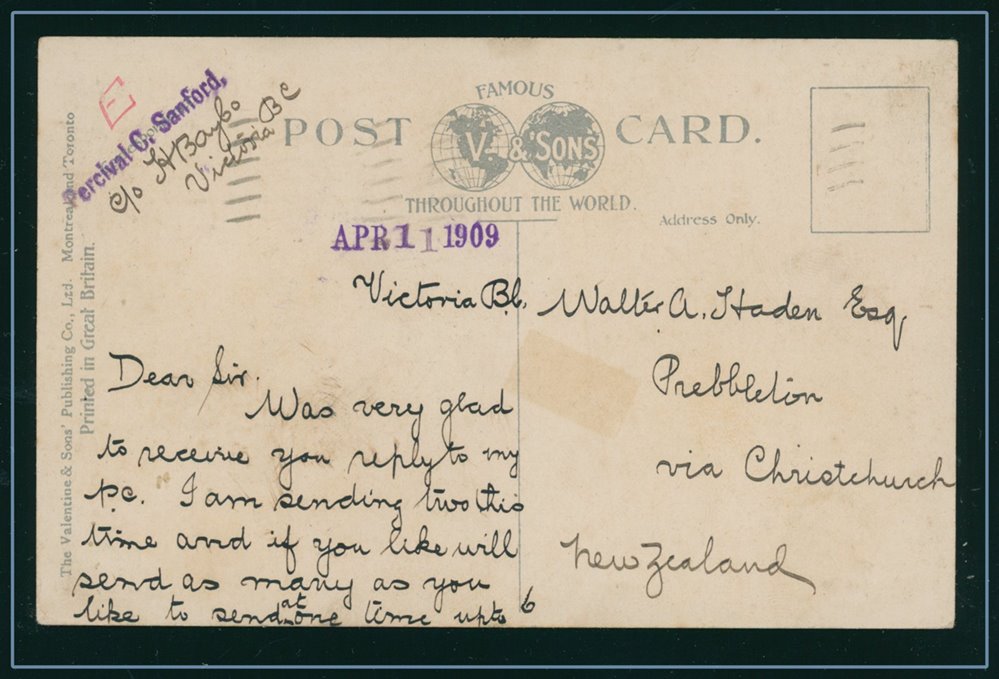 E
Percival C. Sanford,
c/o H
Victoria BC
FAMOUS
POST CARD.
V. & SONS
THROUGHOUT THE WORLD.
Address Only.
The Valentine & Sons' Publishing Co., Ltd. Montreal and Toronto
Printed in Great Britain.
APR 11 1909
Victoria B.C.
Dear Sir.
Was very glad
to receive you reply to my
p.c. I am sending two this
time and if you like will
send as many as you
like to send at one time upto 6
Walter A. Haden Esq.
Prebbleton
via Christchurch
New Zealand